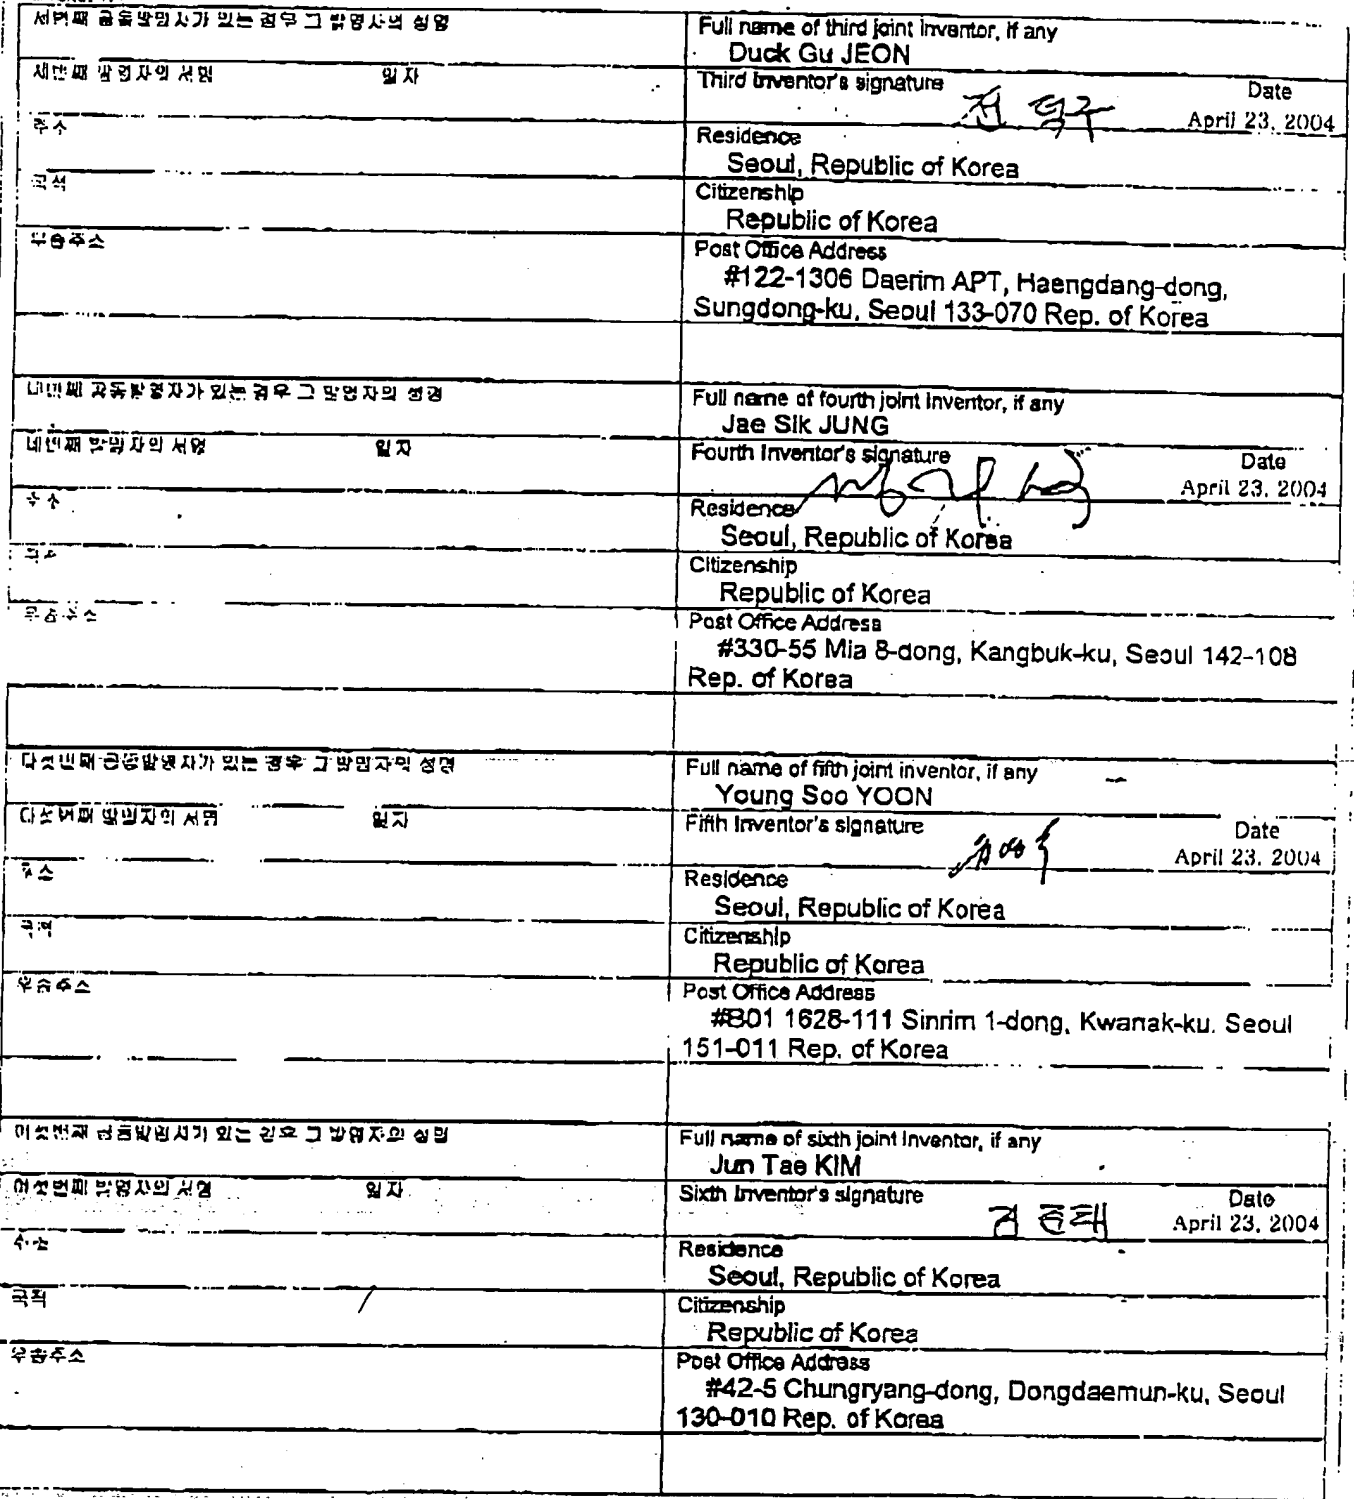 세번째 공동발명자가 있는 경우 그 발명자의 성명
Full name of third joint inventor, if any
Duck Gu JEON
세번째 발명자의 서명 일자
Third Inventor's signature Date
전 덕구
April 23, 2004
주소
Residence
Seoul, Republic of Korea
국적
Citizenship
Republic of Korea
우송주소
Post Office Address
#122-1306 Daerim APT, Haengdang-dong,
Sungdong-ku, Seoul 133-070 Rep. of Korea
네번째 공동발명자가 있는 경우 그 발명자의 성명
Full name of fourth joint inventor, if any
Jae Sik JUNG
네번째 발명자의 서명 일자
Fourth Inventor's signature Date
April 23, 2004
주소
Residence
Seoul, Republic of Korea
국적
Citizenship
Republic of Korea
우송주소
Post Office Address
#330-55 Mia 8-dong, Kangbuk-ku, Seoul 142-108
Rep. of Korea
다섯번째 공동발명자가 있는 경우 그 발명자의 성명
Full name of fifth joint inventor, if any
Young Soo YOON
다섯번째 발명자의 서명 일자
Fifth Inventor's signature Date
April 23, 2004
주소
Residence
Seoul, Republic of Korea
국적
Citizenship
Republic of Korea
우송주소
Post Office Address
#B01 1628-111 Sinrim 1-dong, Kwanak-ku, Seoul
151-011 Rep. of Korea
여섯번째 공동발명자가 있는 경우 그 발명자의 성명
Full name of sixth joint inventor, if any
Jun Tae KIM
여섯번째 발명자의 서명 일자
Sixth Inventor's signature Date
김 준태
April 23, 2004
주소
Residence
Seoul, Republic of Korea
국적
Citizenship
Republic of Korea
우송주소
Post Office Address
#42-5 Chungryang-dong, Dongdaemun-ku, Seoul
130-010 Rep. of Korea